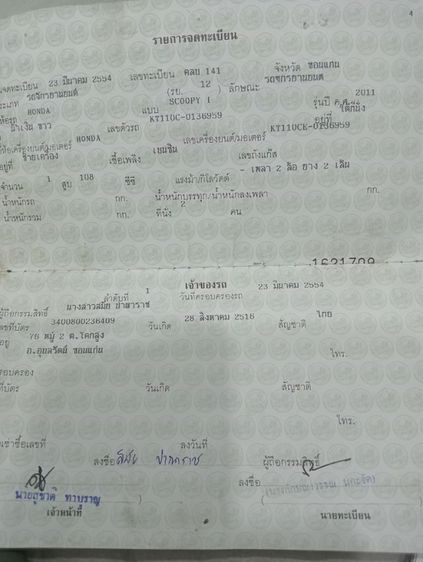 รายการจดทะเบียน
วันจดทะเบียน 23 มีนาคม 2554 เลขทะเบียน คลบ 141 จังหวัด ขอนแก่น
ประเภท รถจักรยานยนต์ (รย. 12 ) ลักษณะ รถจักรยานยนต์
ยี่ห้อรถ HONDA แบบ SCOOPY I รุ่นปี ค.ศ. 2011
สี น้ำเงิน ขาว เลขตัวรถ KT110C-0136959 อยู่ที่ ใต้ที่นั่ง
ยี่ห้อเครื่องยนต์/มอเตอร์ HONDA เลขเครื่องยนต์/มอเตอร์ KT110CE-0136959
อยู่ที่ ซ้ายเครื่อง เชื้อเพลิง เบนซิน เลขถังแก๊ส
จำนวน 1 สูบ 108 ซีซี แรงม้า/กิโลวัตต์ - เพลา 2 ล้อ ยาง 2 เส้น
น้ำหนักรถ กก. น้ำหนักบรรทุก/น้ำหนักลงเพลา กก.
น้ำหนักรวม กก. ที่นั่ง 2 คน
1621709
เจ้าของรถ
ลำดับที่ 1 วันที่ครอบครองรถ 23 มีนาคม 2554
ผู้ถือกรรมสิทธิ์ นางสาวสมัย
เลขที่บัตร 3400800236409 วันเกิด 28 สิงหาคม 2516 สัญชาติ ไทย
ที่อยู่ 76 หมู่ 2 ต.โคกสูง
อ.อุบลรัตน์ ขอนแก่น โทร.
ผู้ครอบครอง
เลขที่บัตร วันเกิด สัญชาติ
โทร.
สัญญาเช่าซื้อเลขที่ ลงวันที่
ลงชื่อ ผู้ถือกรรมสิทธิ์
ลงชื่อ
นายสุชาติ ทาบราญ
เจ้าหน้าที่ นายทะเบียน